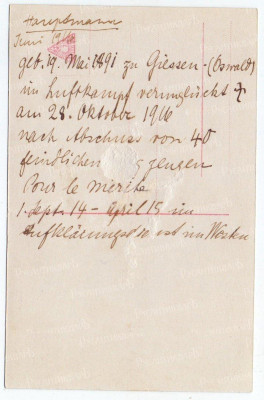 Hauptmann
Juni 1916
geb. 19. Mai 1891 zu Giessen - (Oswald)
im Luftkampf verunglückt
am 28. Oktober 1916
nach Abschuss von 40
feindlichen
Pour le mérite
1. Sept. 14 - April 15 im
im Westen